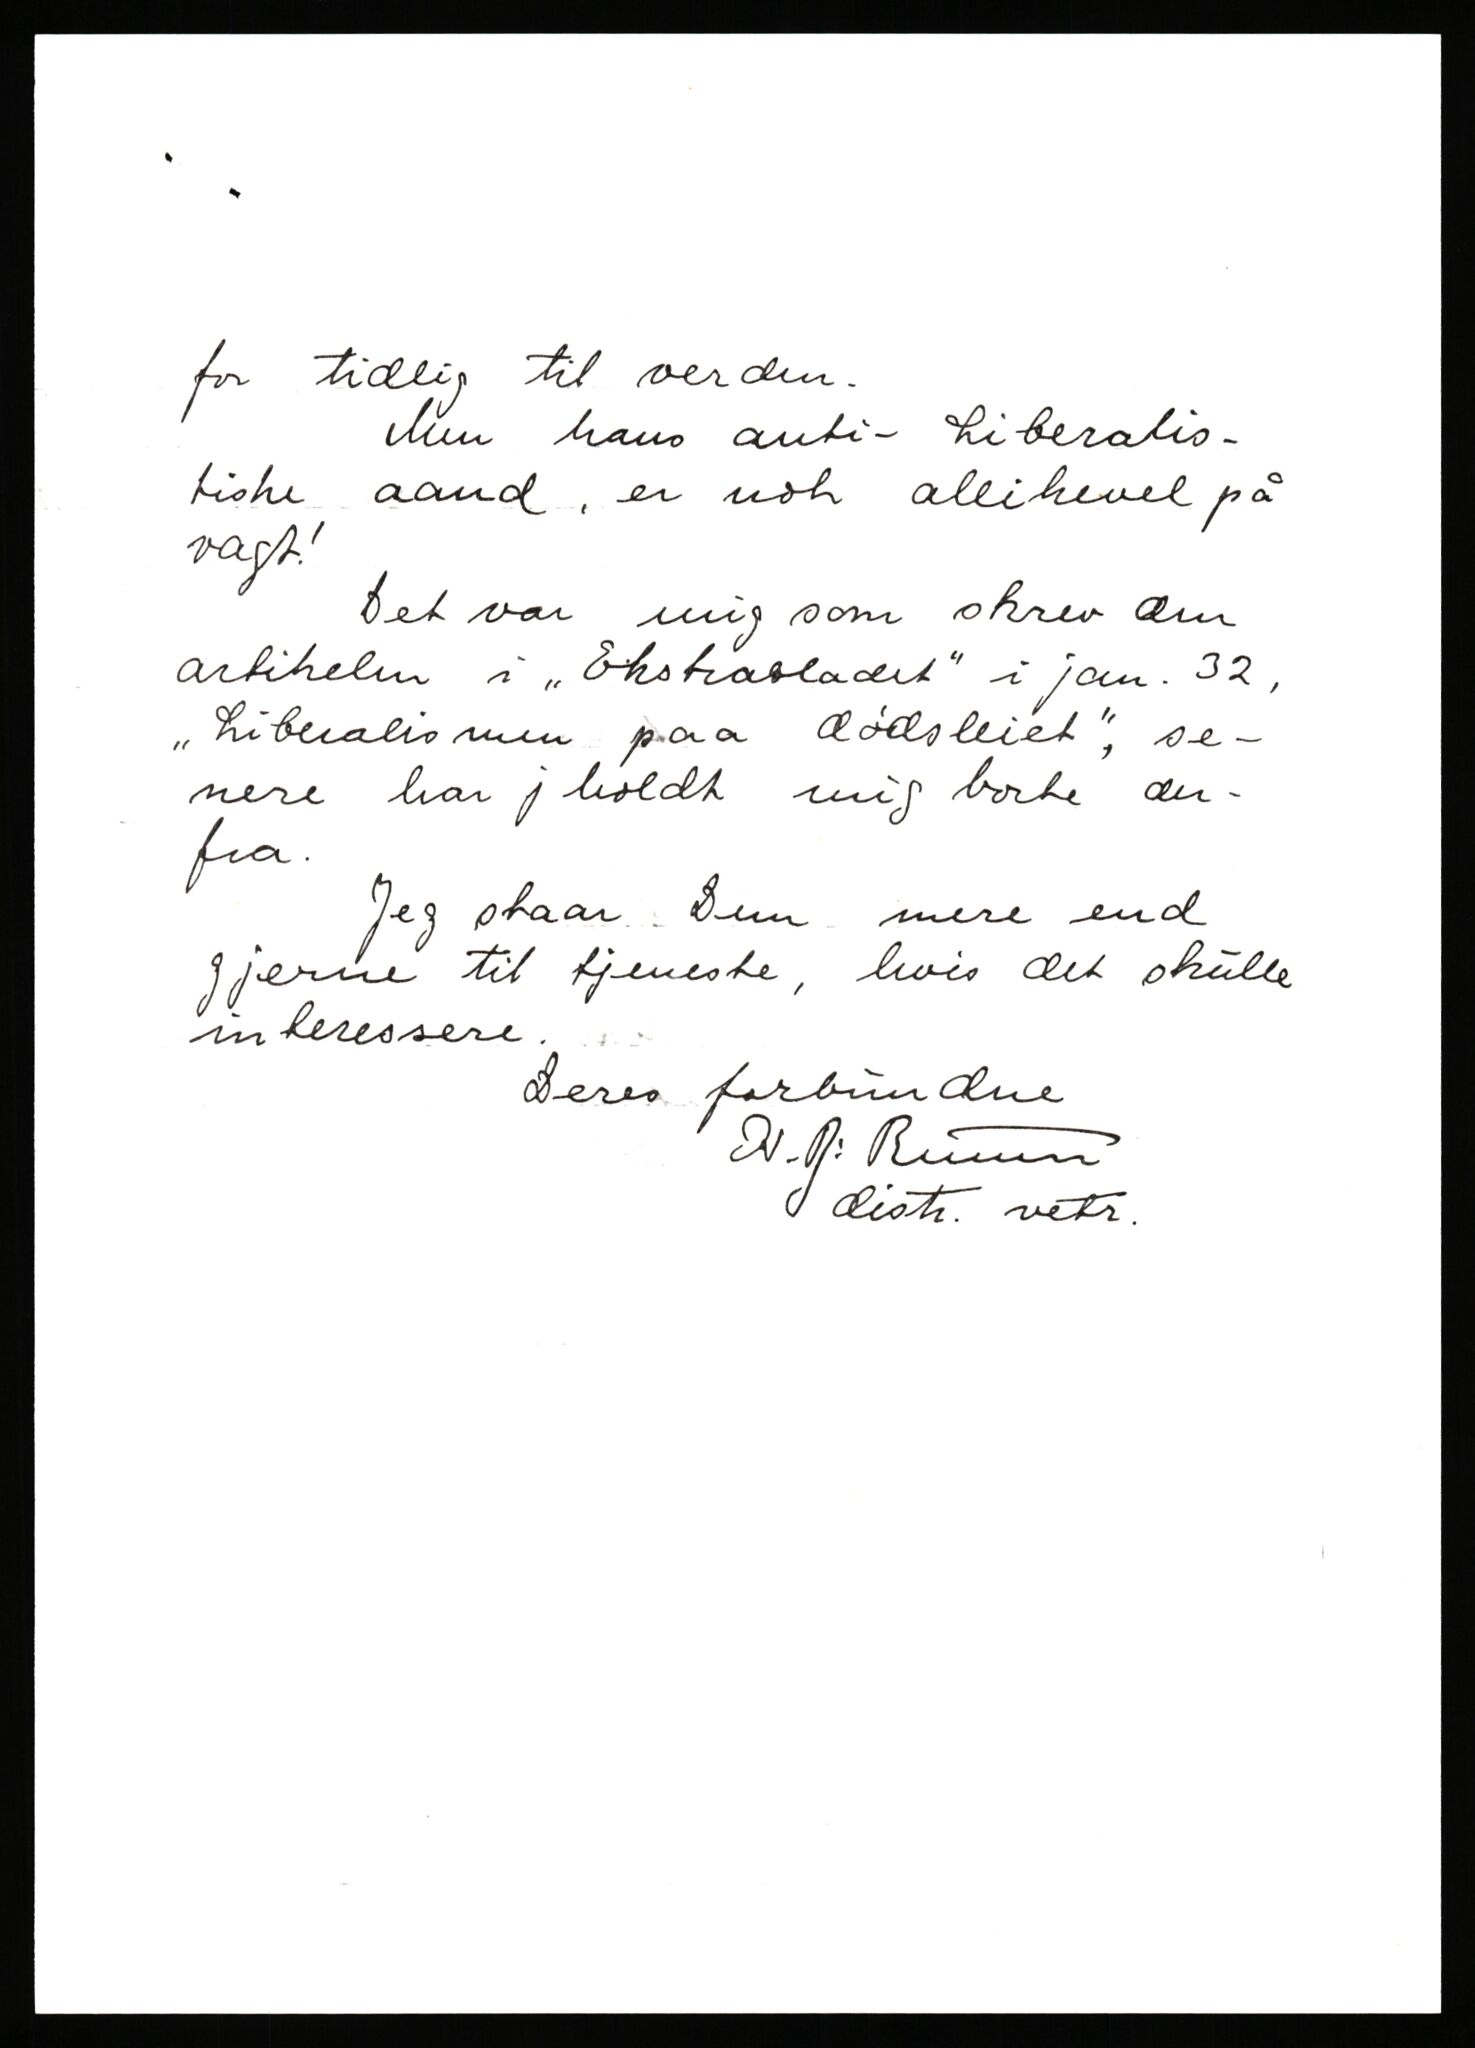 for tidlig til verden.
Men hans anti-Liberalis-
tiske aand, er nok allikevel på
vagt!
Det var mig som skrev den
artikelen i „Ekstrabladet" i jan. 32,
„Liberalismen paa dödsleiet", se-
nere har j holdt mig borte der-
fra.
Jeg staar Dem mere end
gjerne til tjeneste, hvis det skulle
interessere.
Deres forbundne
distr. vetr.